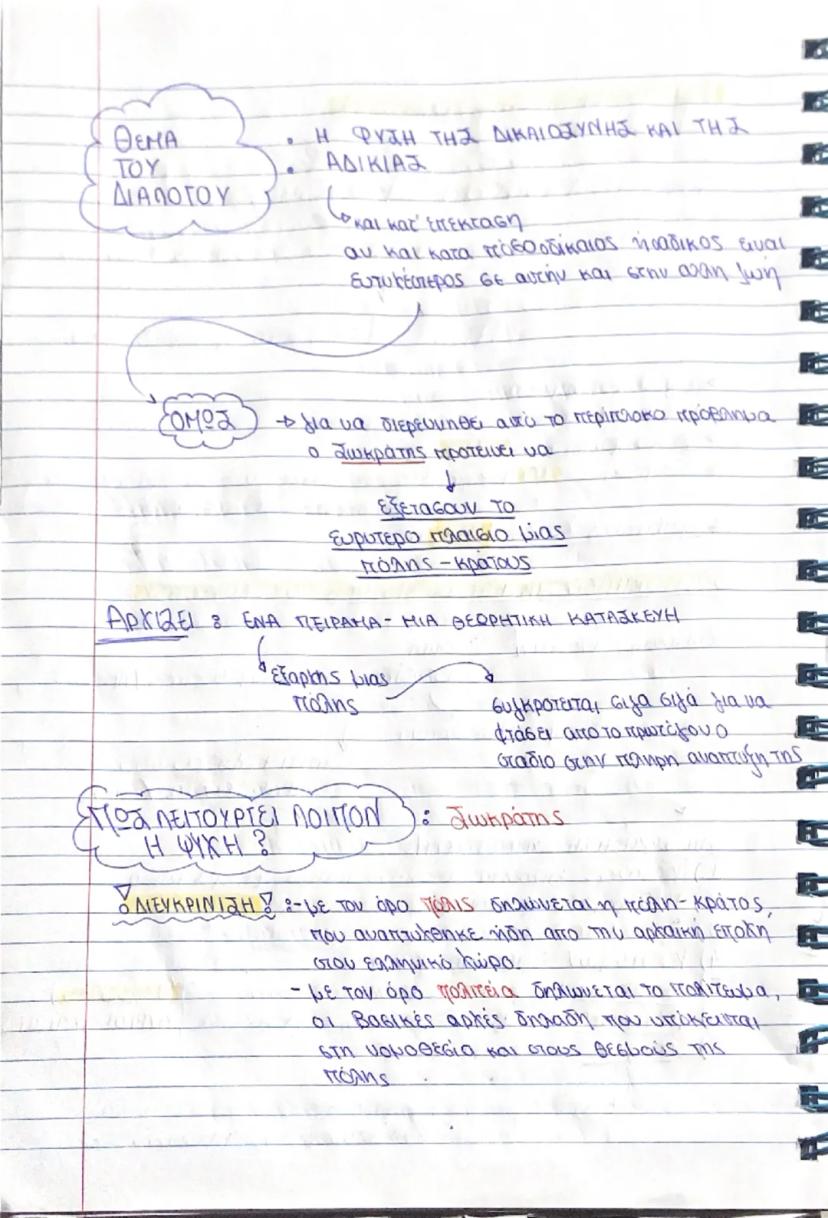 ΘΕΜΑ
ΤΟΥ
ΔΙΑΛΟΓΟΥ
• Η ΦΥΣΗ ΤΗΣ ΔΙΚΑΙΟΣΥΝΗΣ ΚΑΙ ΤΗΣ
• ΑΔΙΚΙΑΣ
↳ και κατ' επεκταση
αν και κατα πόσο ο δίκαιος ή ο αδικος ειναι
ευτυχέστερος σε αυτήν και στην αλλη ζωή
ΟΜΩΣ → για να διερευνηθεί αυτό το περίπλοκο πρόβλημα
ο Σωκράτης προτεινει να
↓
εξετασουν το
ευρυτερο πλαισιο μιας
πόλης - κρατους
ΑΡΧΙΖΕΙ : ΕΝΑ ΠΕΙΡΑΜΑ - ΜΙΑ ΘΕΩΡΗΤΙΚΗ ΚΑΤΑΣΚΕΥΗ
εξαρχης μιας
πόλης
συγκροτειται σιγα σιγά για να
φτάσει απο το πρωτόγονο
σταδιο στην πληρη αναπτυξη της
ΠΩΣ ΛΕΙΤΟΥΡΓΕΙ ΛΟΙΠΟΝ : Σωκράτης
Η ΨΥΧΗ ?
! ΔΙΕΥΚΡΙΝΙΣΗ ! : - με τον όρο πόλις δηλώνεται η πόλη - κράτος,
που αναπτύχθηκε ήδη απο την αρχαική εποχη
στον ελληνικό χώρο.
- με τον όρο πολιτεία δηλωνεται το πολίτευμα,
οι βασικές αρχές δηλαδή που υπόκεινται
στη νομοθεσία και στους θεσμούς της
πόλης